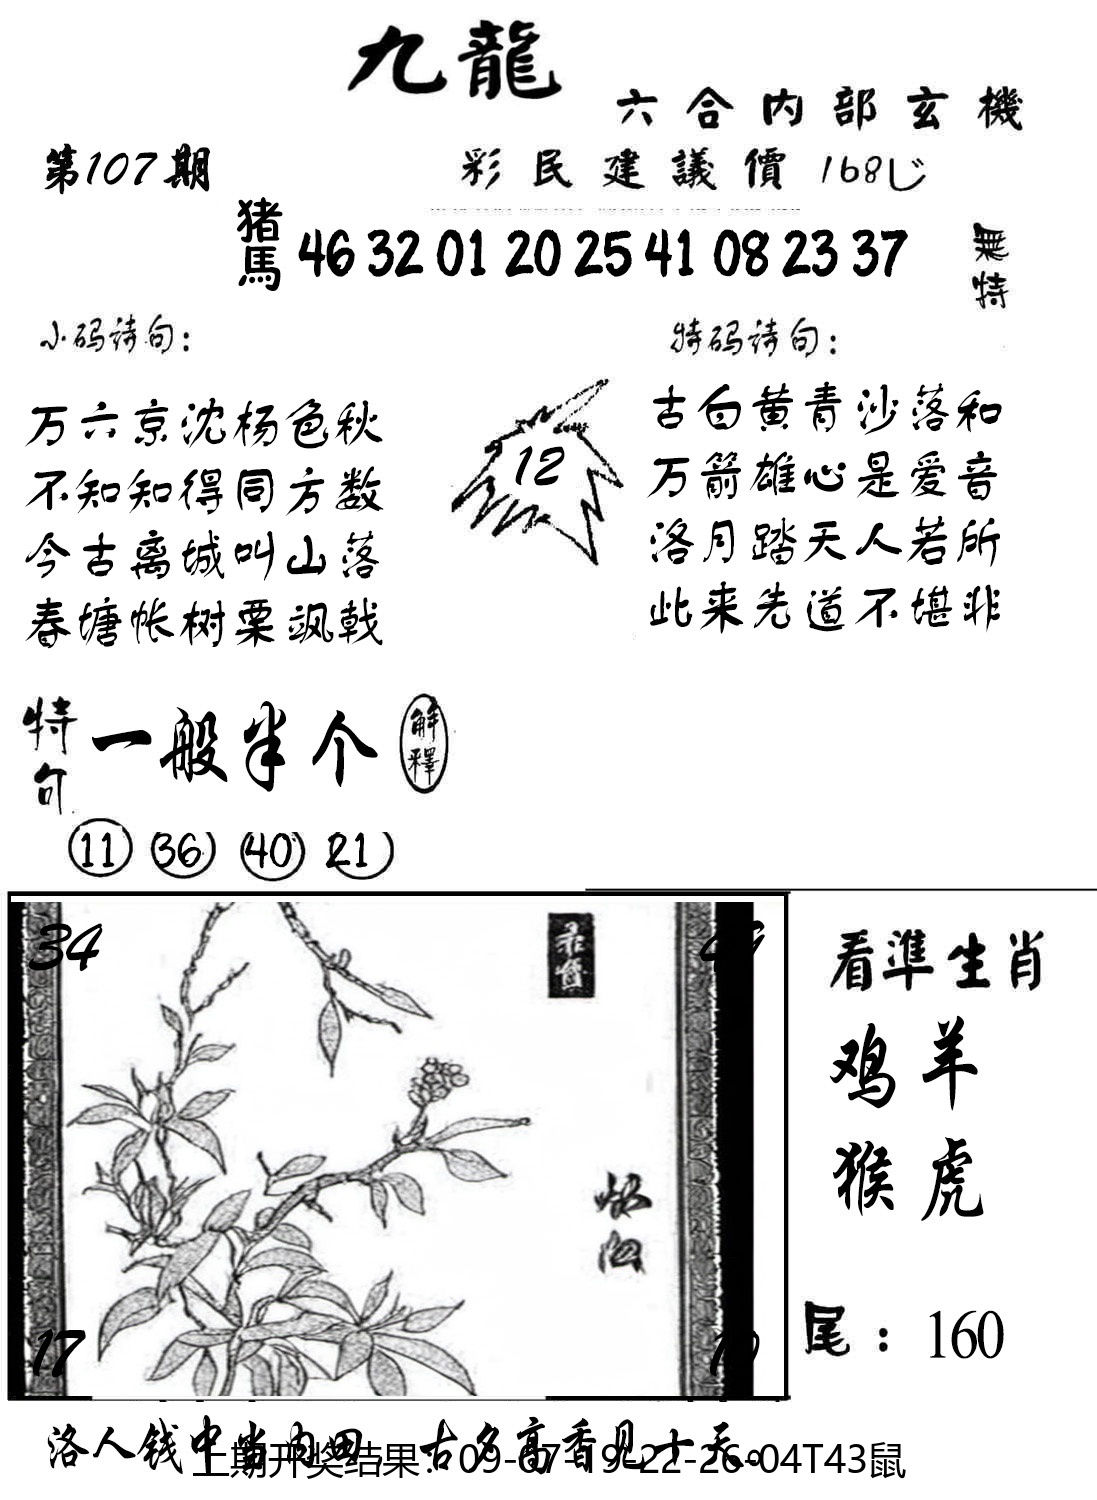 九龍
六合内部玄機
第107期
彩民建議價 168
猪馬 46 32 01 20 25 41 08 23 37
無特
小码诗句：
特码诗句：
万六京沈杨色秋
不知知得同方数
今古离城叫山落
春塘帐树栗飒戟
12
古白黄青沙落和
万箭雄心是爱音
洛月踏天人若所
此来先道不堪非
特句 一般半个 解釋
11 36 40 21
34
17
看準生肖
鸡羊
猴虎
尾：160
洛人钱中当内田，古多高香见十天。
上期开奖结果：09-07-19-22-26-04T43鼠